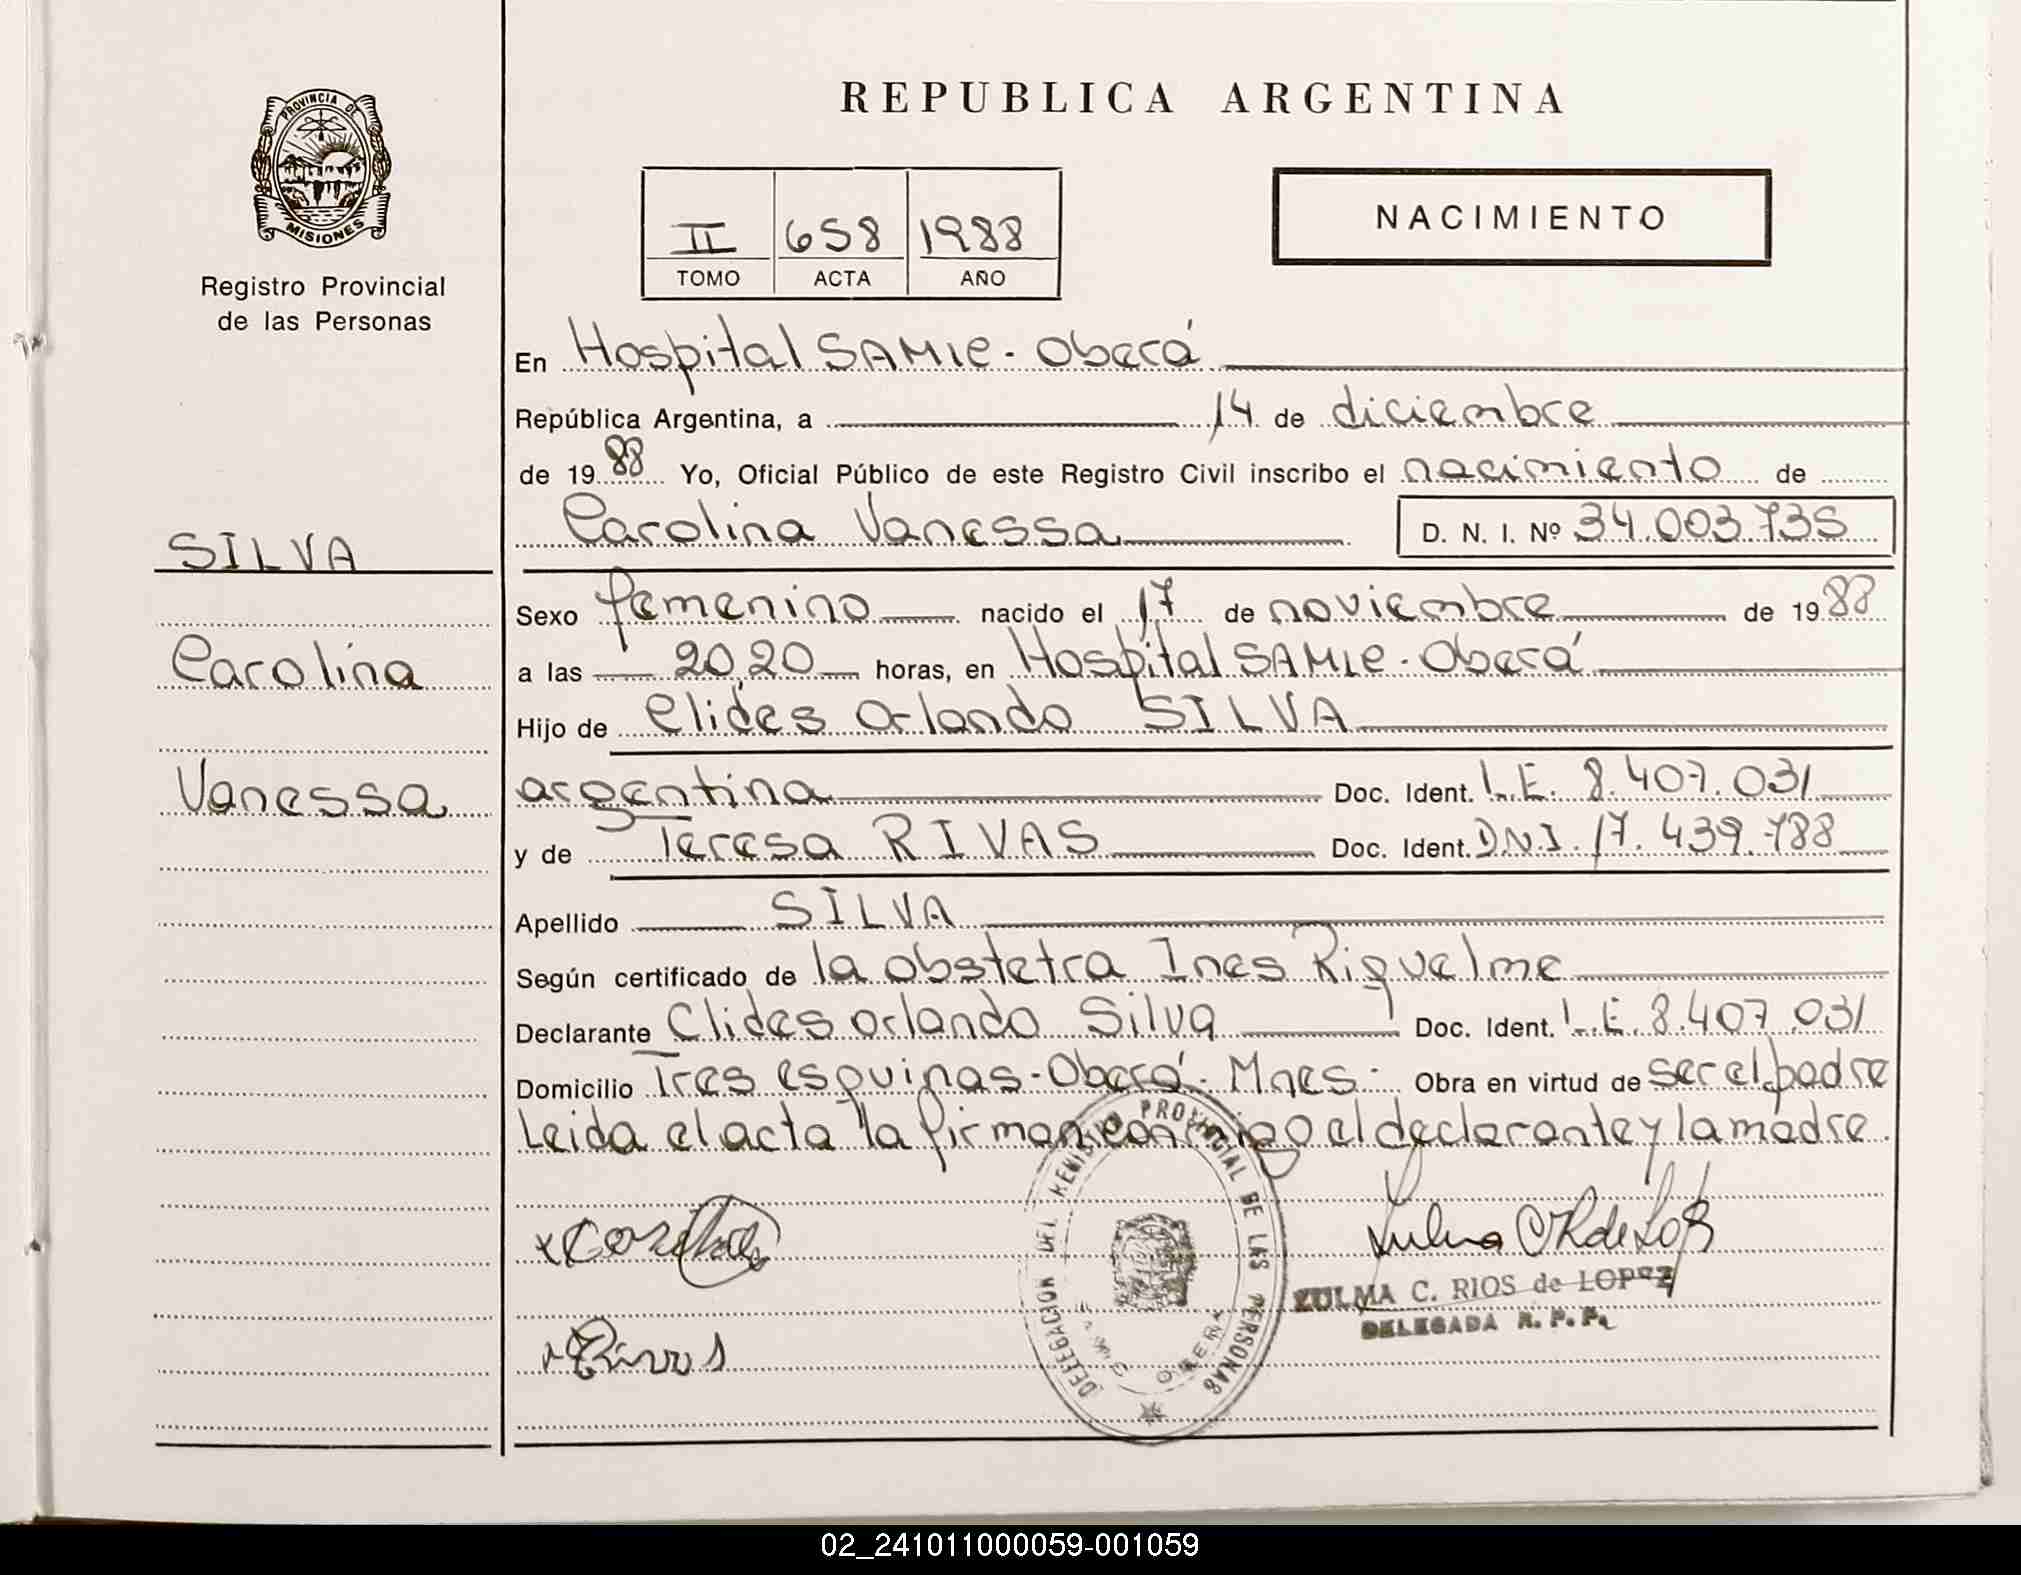 PROVINCIA DE
MISIONES
Registro Provincial
de las Personas
SILVA
Carolina
Vanessa
REPUBLICA ARGENTINA
II 658 1988
TOMO ACTA AÑO
NACIMIENTO
En Hospital SAMIC - Oberá
República Argentina, a 14 de diciembre
de 1988 Yo, Oficial Público de este Registro Civil inscribo el nacimiento de
Carolina Vanessa D. N. I. Nº 34.003.735
Sexo femenino nacido el 17 de noviembre de 1988
a las 20,20 horas, en Hospital SAMIC - Oberá
Hijo de Clides Orlando SILVA
argentina Doc. Ident. L.E. 8.407.031
y de Teresa RIVAS Doc. Ident. D.N.I. 17.439.788
Apellido SILVA
Según certificado de la obstetra Ines Riquelme
Declarante Clides Orlando Silva Doc. Ident. L.E. 8.407.031
Domicilio Tres esquinas - Oberá - Mnes - Obra en virtud de ser el padre
Leida el acta la firman conmigo el declarante y la madre.
DELEGACION DEL REGISTRO PROVINCIAL DE LAS PERSONAS
OBERA
ZULMA C. RIOS de LOPEZ
DELEGADA R. P. P.
02_241011000059-001059